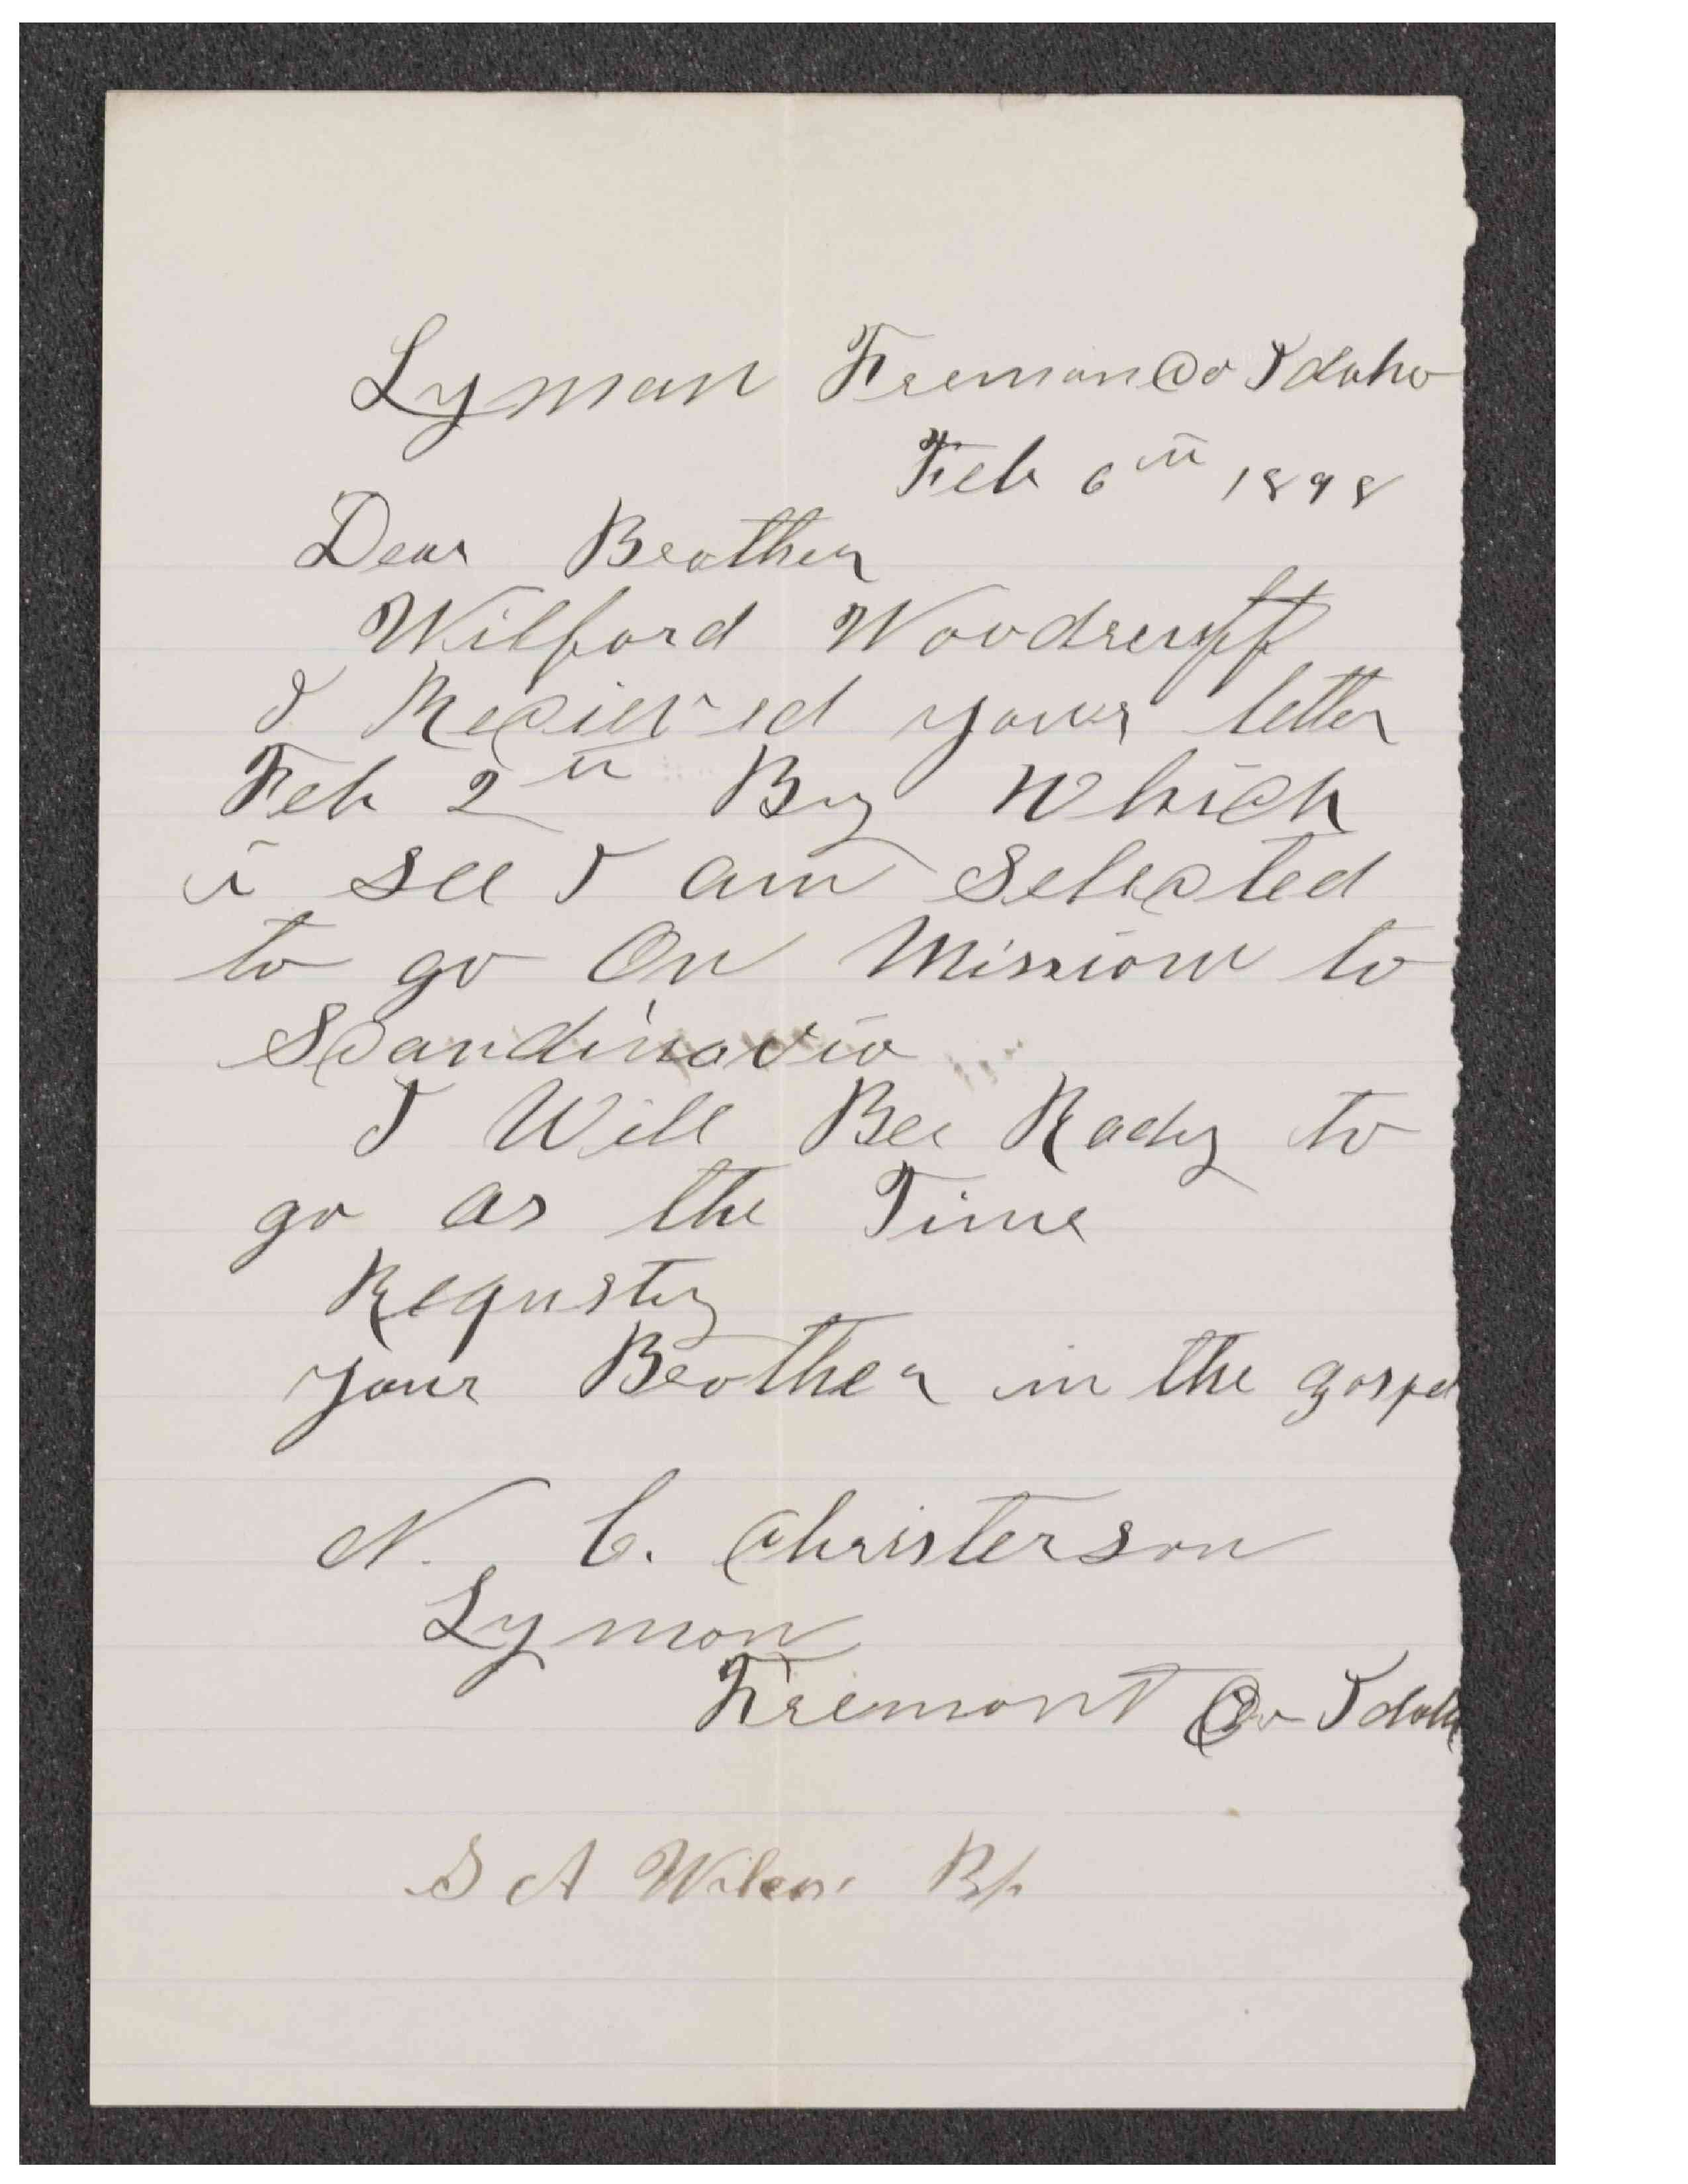 Lyman Fremon Co Idaho
Feb 6th 1898
Dear Brother
Wilford Woodruff
I Recieved your letter
Feb 2th By Which
i see I am Selected
to go On Mission to
Scandinavia
I Will Bee Rady to
go as the Time
Requsty
your Brother in the gospel
N. C. Christerson
Lyman
Fremont Co Idaho
S A Wilcox Bp